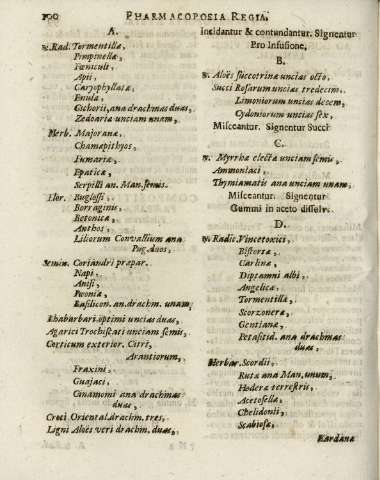 100 PHARMACOPOEIA REGIA.
A.
℞. Rad. Tormentillæ,
Pimpinellæ,
Fœniculi,
Apii,
Caryophyllatæ,
Enulæ,
Cichorii, ana drachmas duas,
Zedoariæ unciam unam,
Herb. Majoranæ,
Chamæpithyos,
Fumariæ,
Epaticæ,
Serpilli an. Man. semis.
Flor. Buglossi,
Borraginis,
Betonicæ,
Anthos,
Liliorum Convallium ana
Pug. duos,
Semin. Coriandri præpar.
Napi,
Anisi,
Pæoniæ,
Basilicon. an. drachm. unam,
Rhabarbari optimi uncias duas,
Agarici Trochiscati unciam semis,
Corticum exterior. Citri,
Arantiorum,
Fraxini,
Guajaci,
Cinamomi ana drachmas
duas,
Croci Oriental. drachm. tres,
Ligni Aloës veri drachm. duas,
Incidantur & contundantur. Signentur
Pro Infusione,
B.
℞. Aloës succotrinæ uncias octo,
Succi Rosarum uncias tredecim,
Limoniorum uncias decem,
Cydoniorum uncias sex,
Misceantur. Signentur Succi
C.
℞. Myrrhæ electæ unciam semis,
Ammoniaci,
Thymiamatis ana unciam unam,
Misceantur. Signentur
Gummi in aceto dissolv.
D.
℞. Radic. Vincetoxici,
Bistortæ,
Carlinæ,
Diptamni albi,
Angelicæ,
Tormentillæ,
Scorzoneræ,
Gentianæ,
Petasitid. ana drachmas
duas,
Herbar. Scordii,
Rutæ ana Man. unum,
Hederæ terrestris,
Acetosellæ,
Chelidonii,
Scabiosæ,
Kardanæ